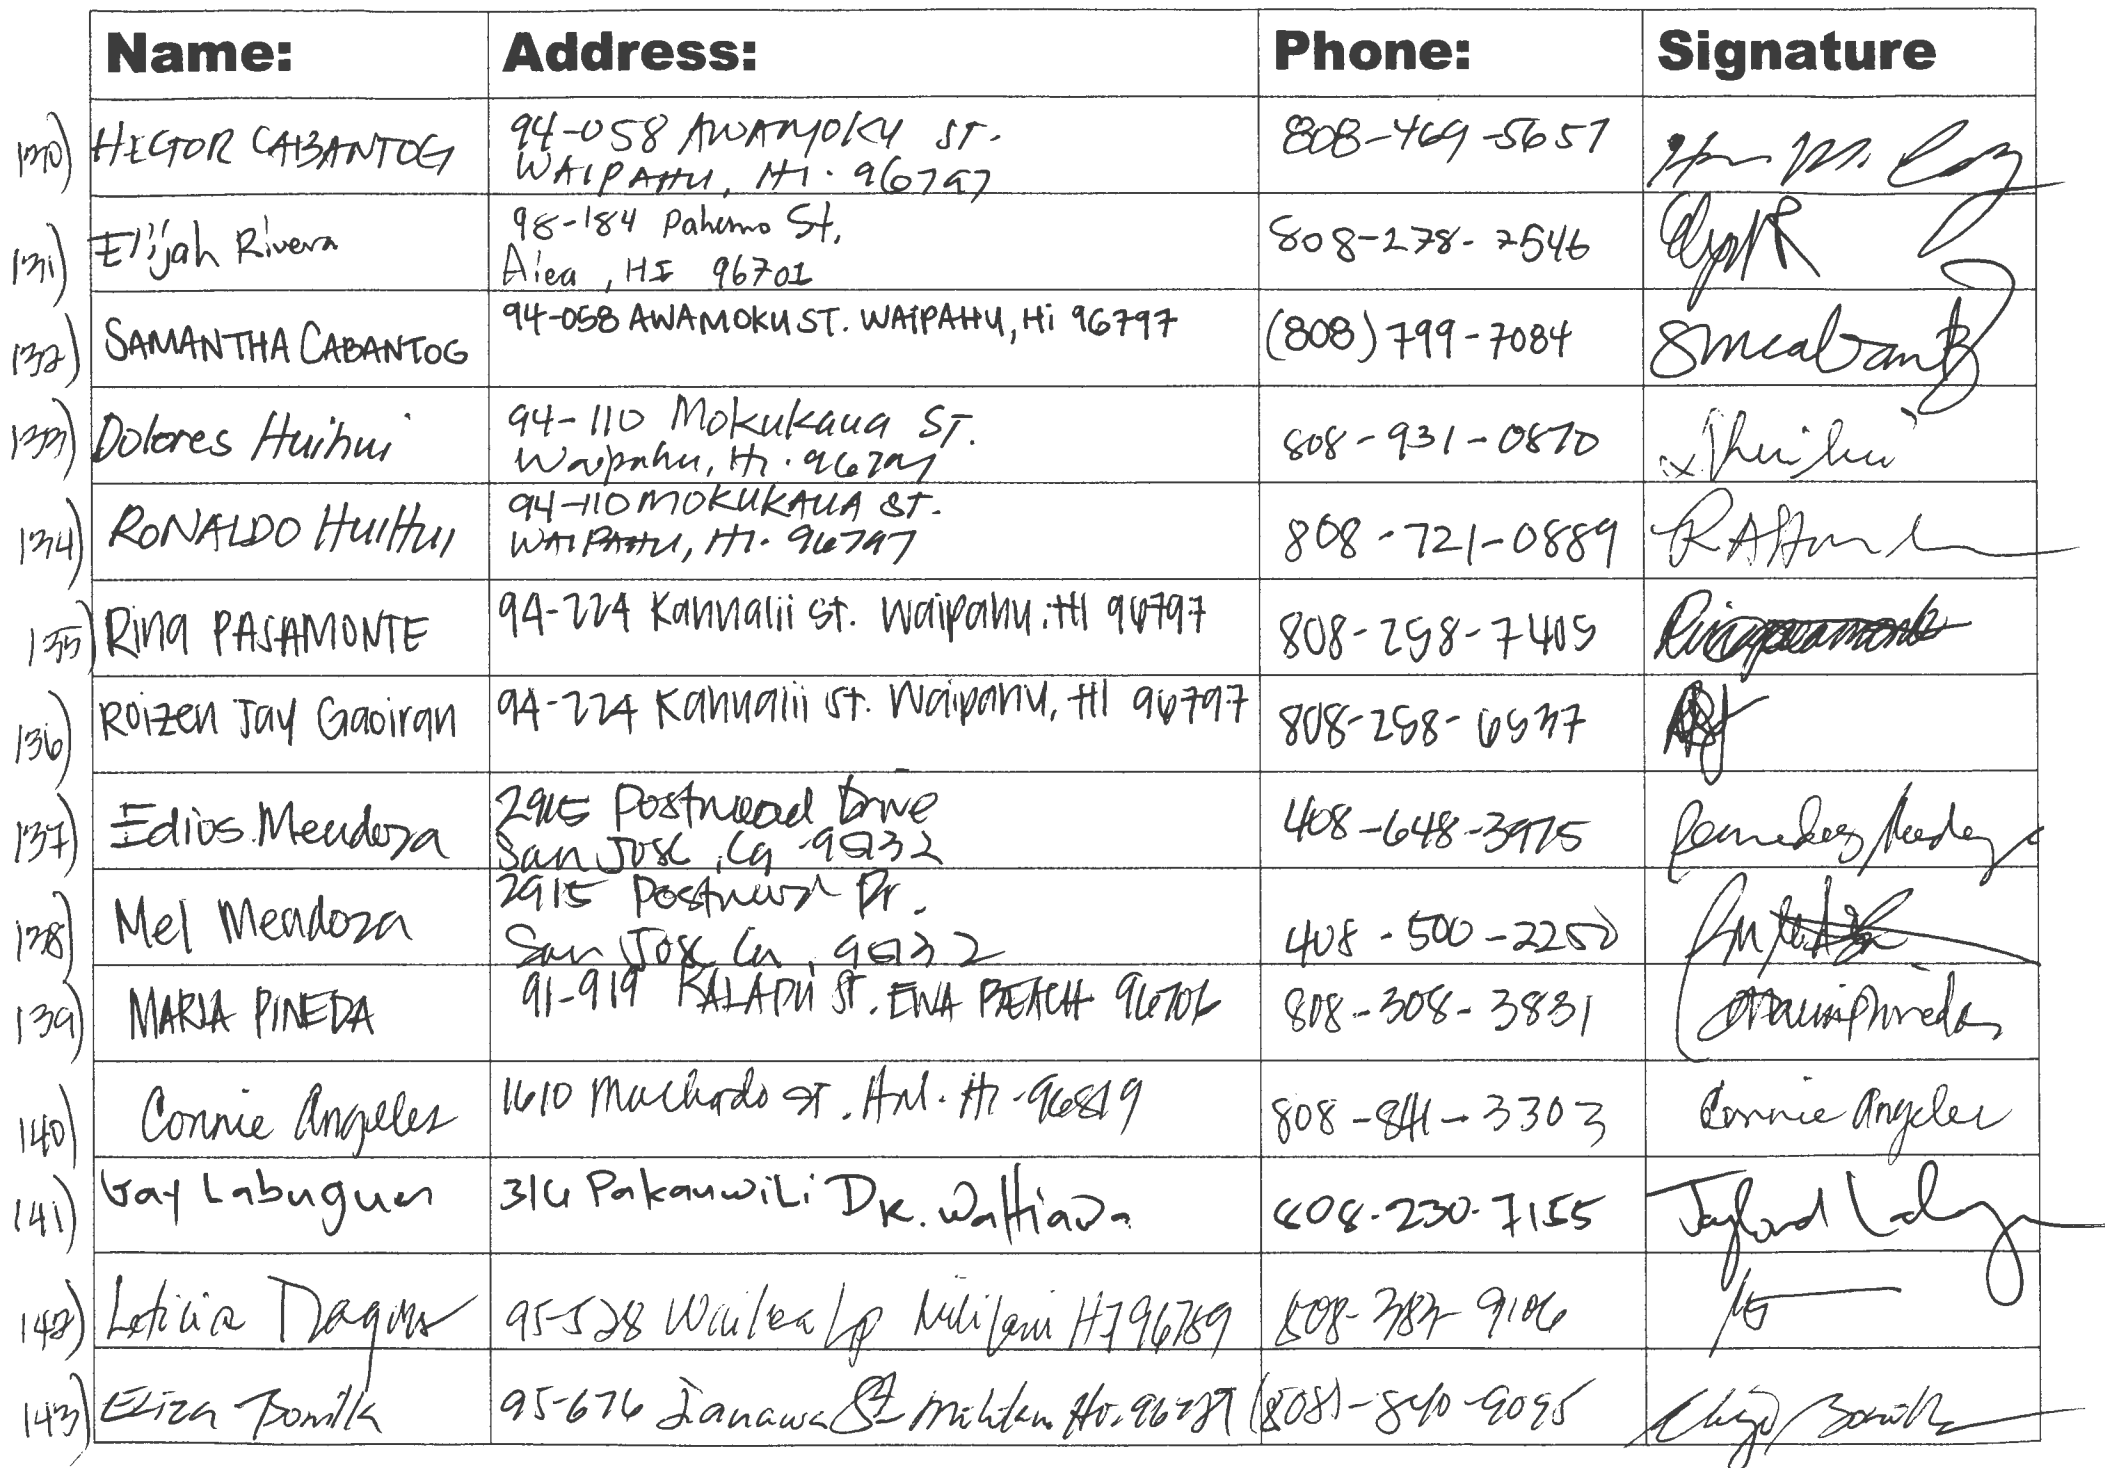 Name: Address: Phone: Signature
130) HECTOR CABANTOG 94-058 AWAMOKU ST. 808-469-5657
WAIPAHU, HI. 96797
131) Elijah Rivera 98-184 Pahemo St, 808-278-7546
Aiea, HI 96701
132) SAMANTHA CABANTOG 94-058 AWAMOKU ST. WAIPAHU, Hi 96797 (808) 799-7084
133) Dolores Huihui 94-110 Mokukaua ST. 808-931-0870
Waipahu, Hi. 96797
134) RONALDO HuiHui 94-110 MOKUKAUA ST. 808-721-0889
WAIPAHU, HI. 96797
135) Rina PASAMONTE 94-224 Kahualii St. Waipahu, HI 96797 808-258-7405
136) Roizen Jay Gaoiran 94-224 Kahualii St. Waipahu, HI 96797 808-258-6537
137) Edios Mendoza 2915 Postwood Drive 408-648-3975
San Jose, Ca 95132
138) Mel Mendoza 2915 Postwood Dr. 408-500-2250
San Jose Ca, 95132
139) MARIA PINEDA 91-919 KALAPU ST. EWA BEACH 96706 808-308-3831
140) Connie Angeles 1610 Machado ST. Hnl. Hi-96819 808-841-3303 Connie Angeles
141) Gay Labuguen Pakauwili DR. Wahiawa 808-230-7155
142) Leticia 95-528 Wailea Lp Mililani HI 96789 808-382-9106
143) Eliza Bonilla 95-676 St 96789 (808)-840-9095